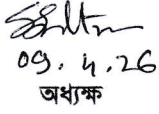 09.4.26
অধ্যক্ষ